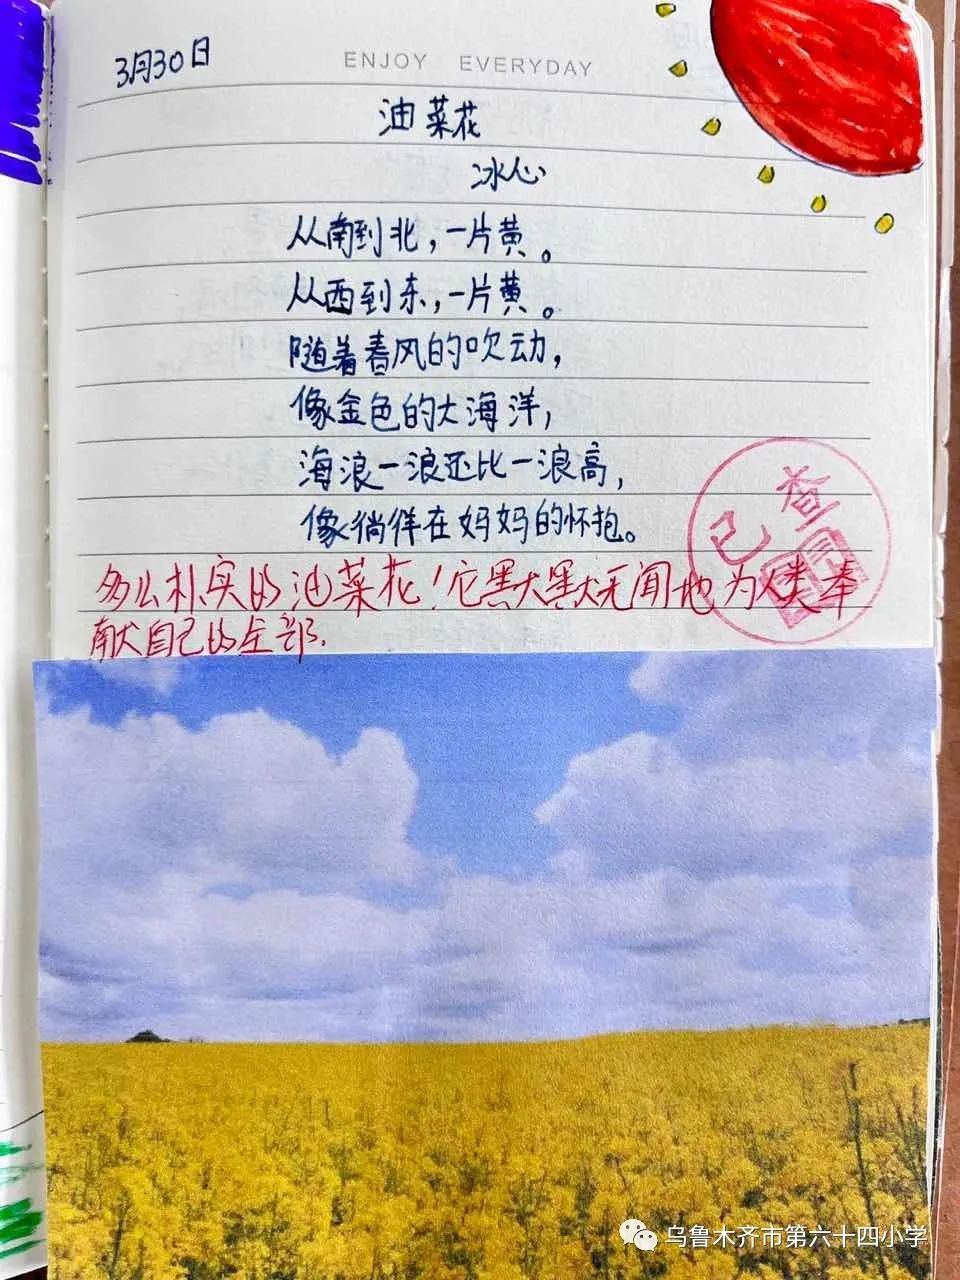 3月30日
ENJOY EVERYDAY
油菜花
冰心
从南到北，一片黄。
从西到东，一片黄。
随着春风的吹动，
像金色的大海洋，
海浪一浪还比一浪高，
像徜徉在妈妈的怀抱。
已查
多么朴实的油菜花！它默默无闻地为人类奉
献自己的全部.
乌鲁木齐市第六十四小学